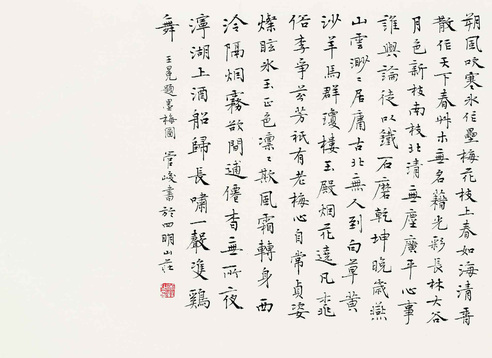 朔風吹寒冰作壘梅花枝上春如海清香
散作天下春艸木無名藉光彩長林大谷
月色新枝南枝北清無塵廣平心事
誰與論徒以鐵石磨乾坤晚歲燕
山雲渺々居庸古北無人到白草黃
沙羊馬群瓊樓玉殿烟花遶凡桃
俗李爭芬芳祇有老梅心自常貞姿
燦眩冰玉正色凜々欺風霜轉身西
泠隔烟霧欲問逋僊杳無所夜
深湖上酒船歸長嘯一聲雙鶴
舞 王冕題墨梅圖 管峻書於四明山莊